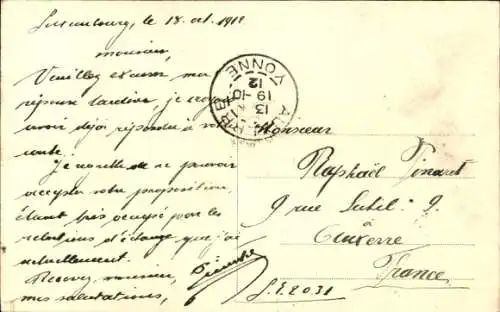 Luxembourg, le 18 oct. 1912
monsieur,
Veuillez excuser ma
réponse tardive, je croyais
avoir déjà répondu à votre
carte.
Je regrette de ne pouvoir
accepter votre proposition,
étant très occupé pour les
relations d'échange que j'ai
actuellement.
Recevez, monsieur,
mes salutations,
YONNE
13
19-10
12
Monsieur
Raphaël
9 rue 9.
à
Auxerre
France